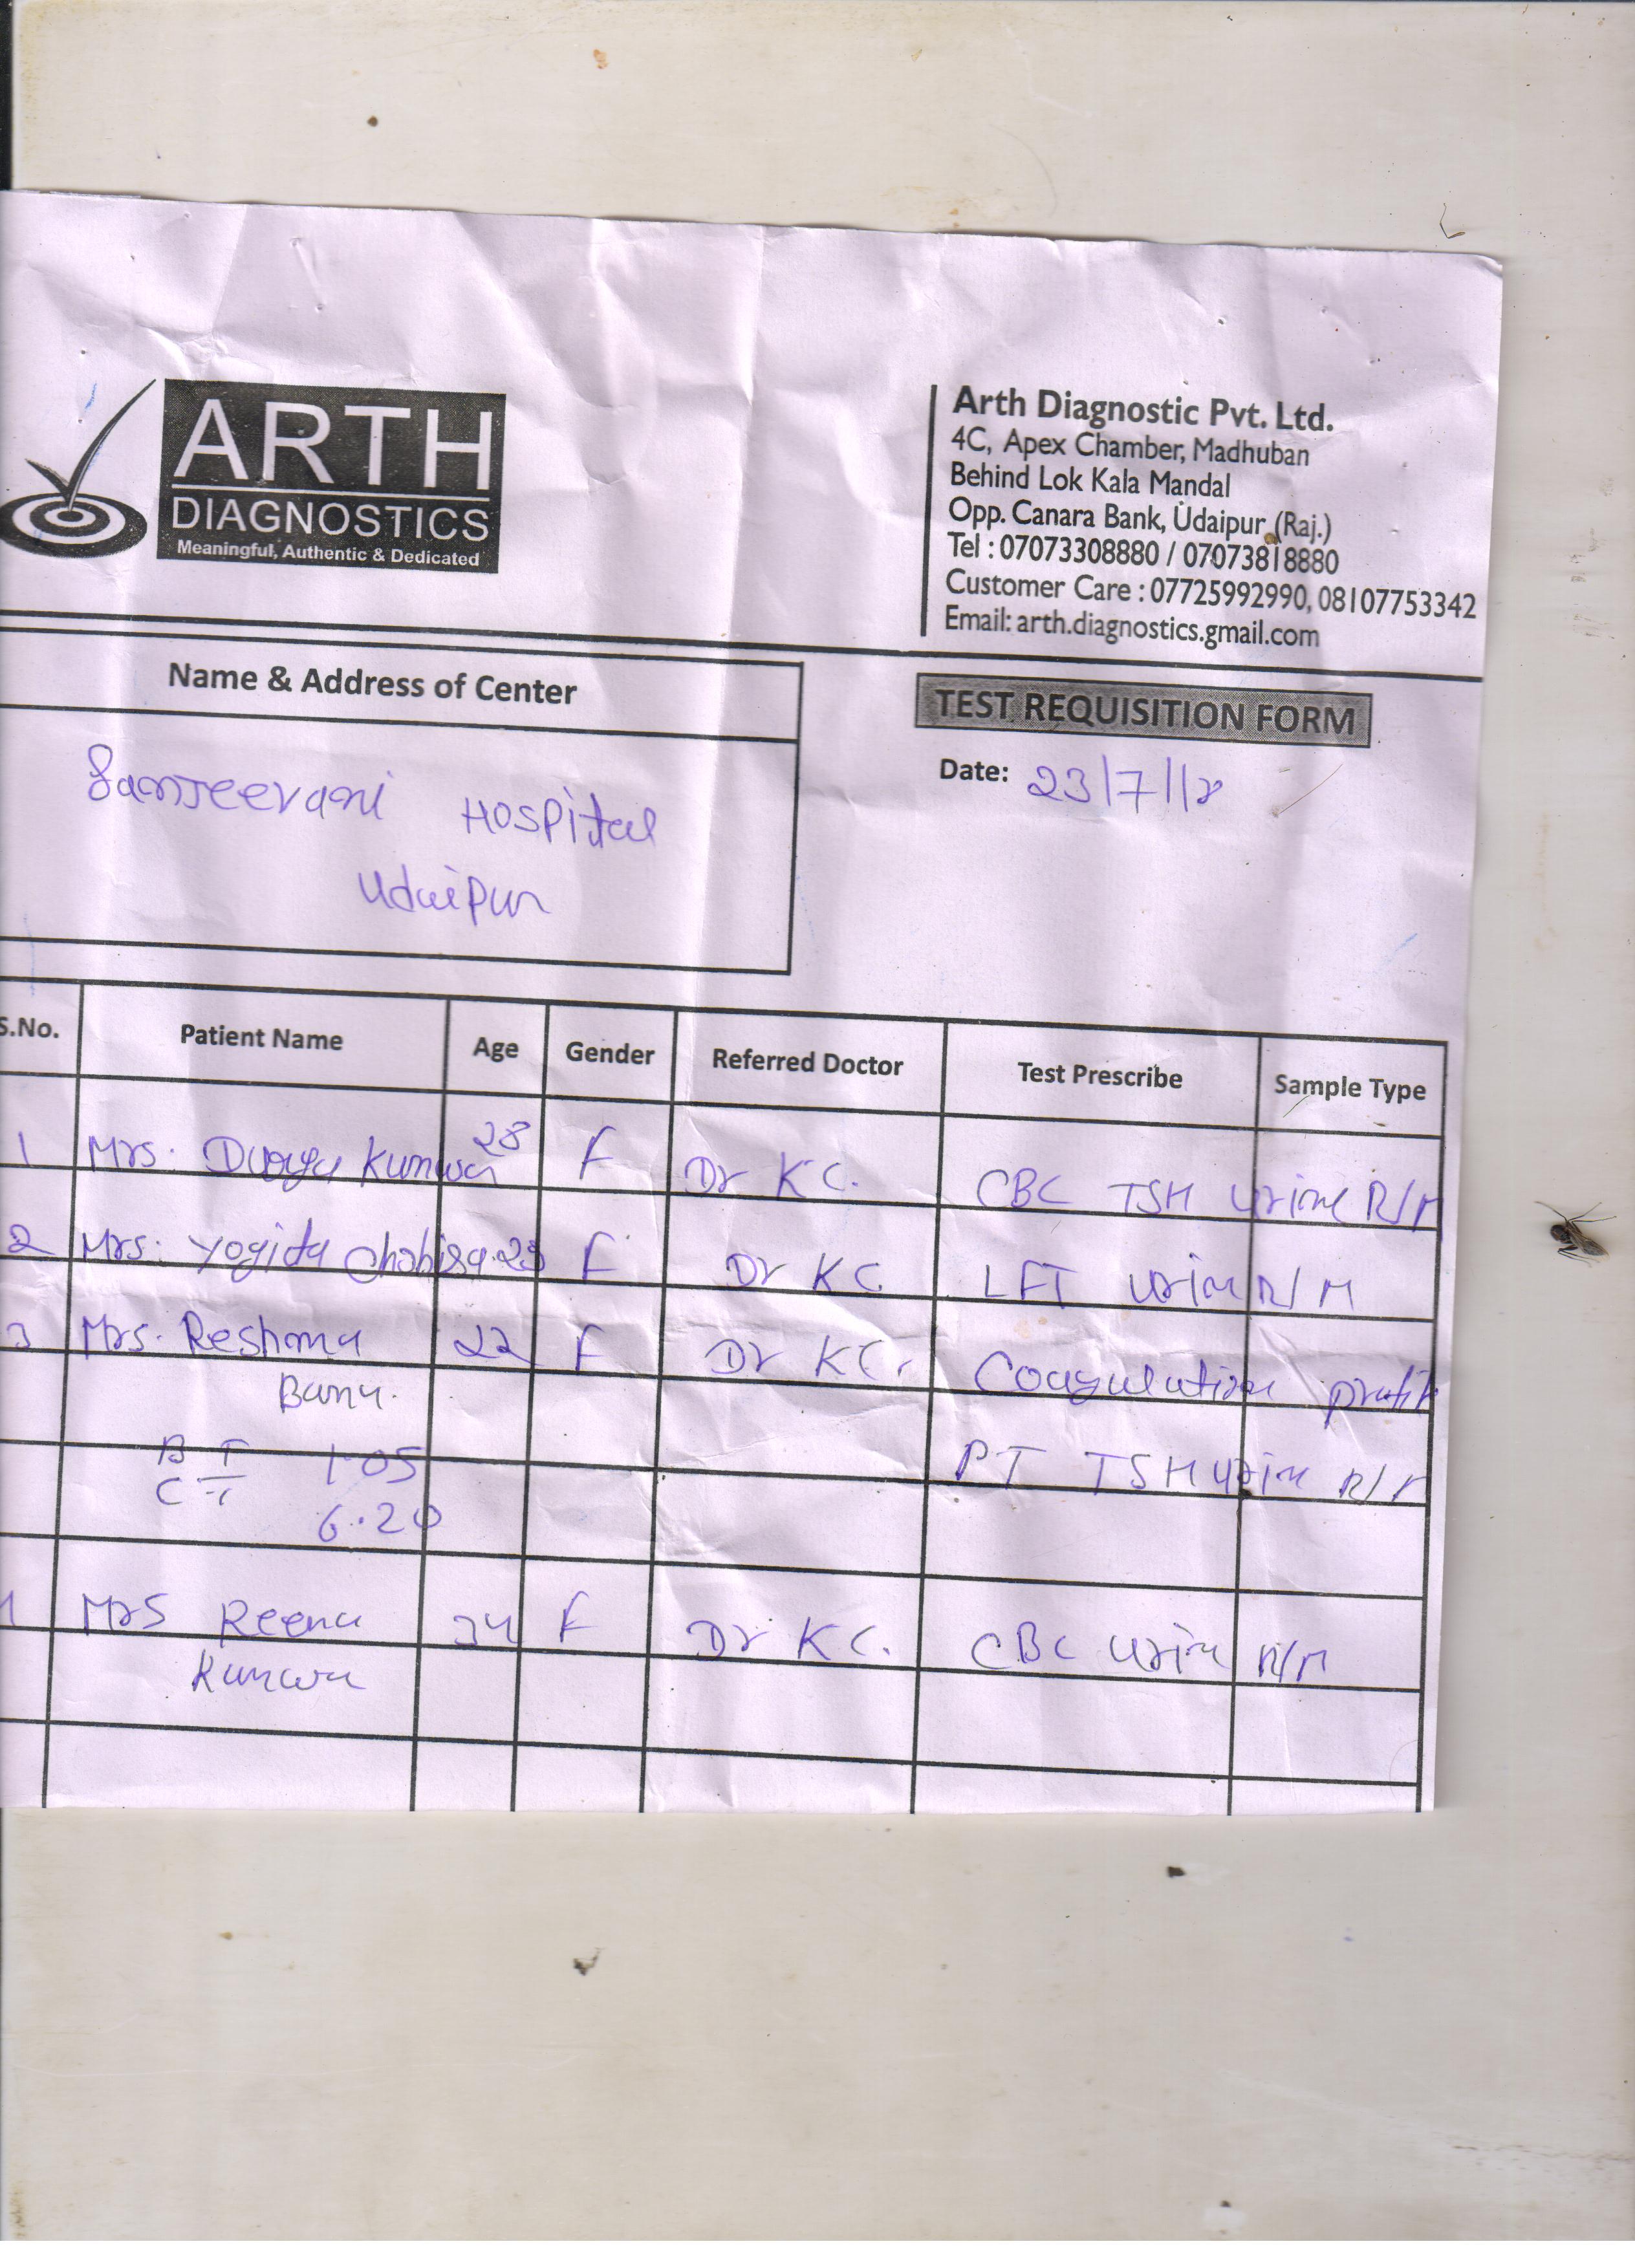 ARTH
DIAGNOSTICS
Meaningful, Authentic & Dedicated
Arth Diagnostic Pvt. Ltd.
4C, Apex Chamber, Madhuban
Behind Lok Kala Mandal
Opp. Canara Bank, Udaipur (Raj.)
Tel : 07073308880 / 07073818880
Customer Care : 07725992990, 08107753342
Email: arth.diagnostics.gmail.com
Name & Address of Center
TEST REQUISITION FORM
Date: 23/7/18
Sanjeevani Hospital
Udaipur
S.No. Patient Name Age Gender Referred Doctor Test Prescribe Sample Type
1 Mrs. Kunwar 28 F Dr KC. CBC TSH Urine R/M
2 Mrs. Yogita 23 F Dr KC LFT Urine R/M
3 Mrs. Reshma 22 F Dr KC. Coagulation profile
Banu.
BT 1.05 PT TSH Urine R/M
CT 6.20
Mrs Reena 34 F Dr KC. CBC Urine R/M
Kunwar